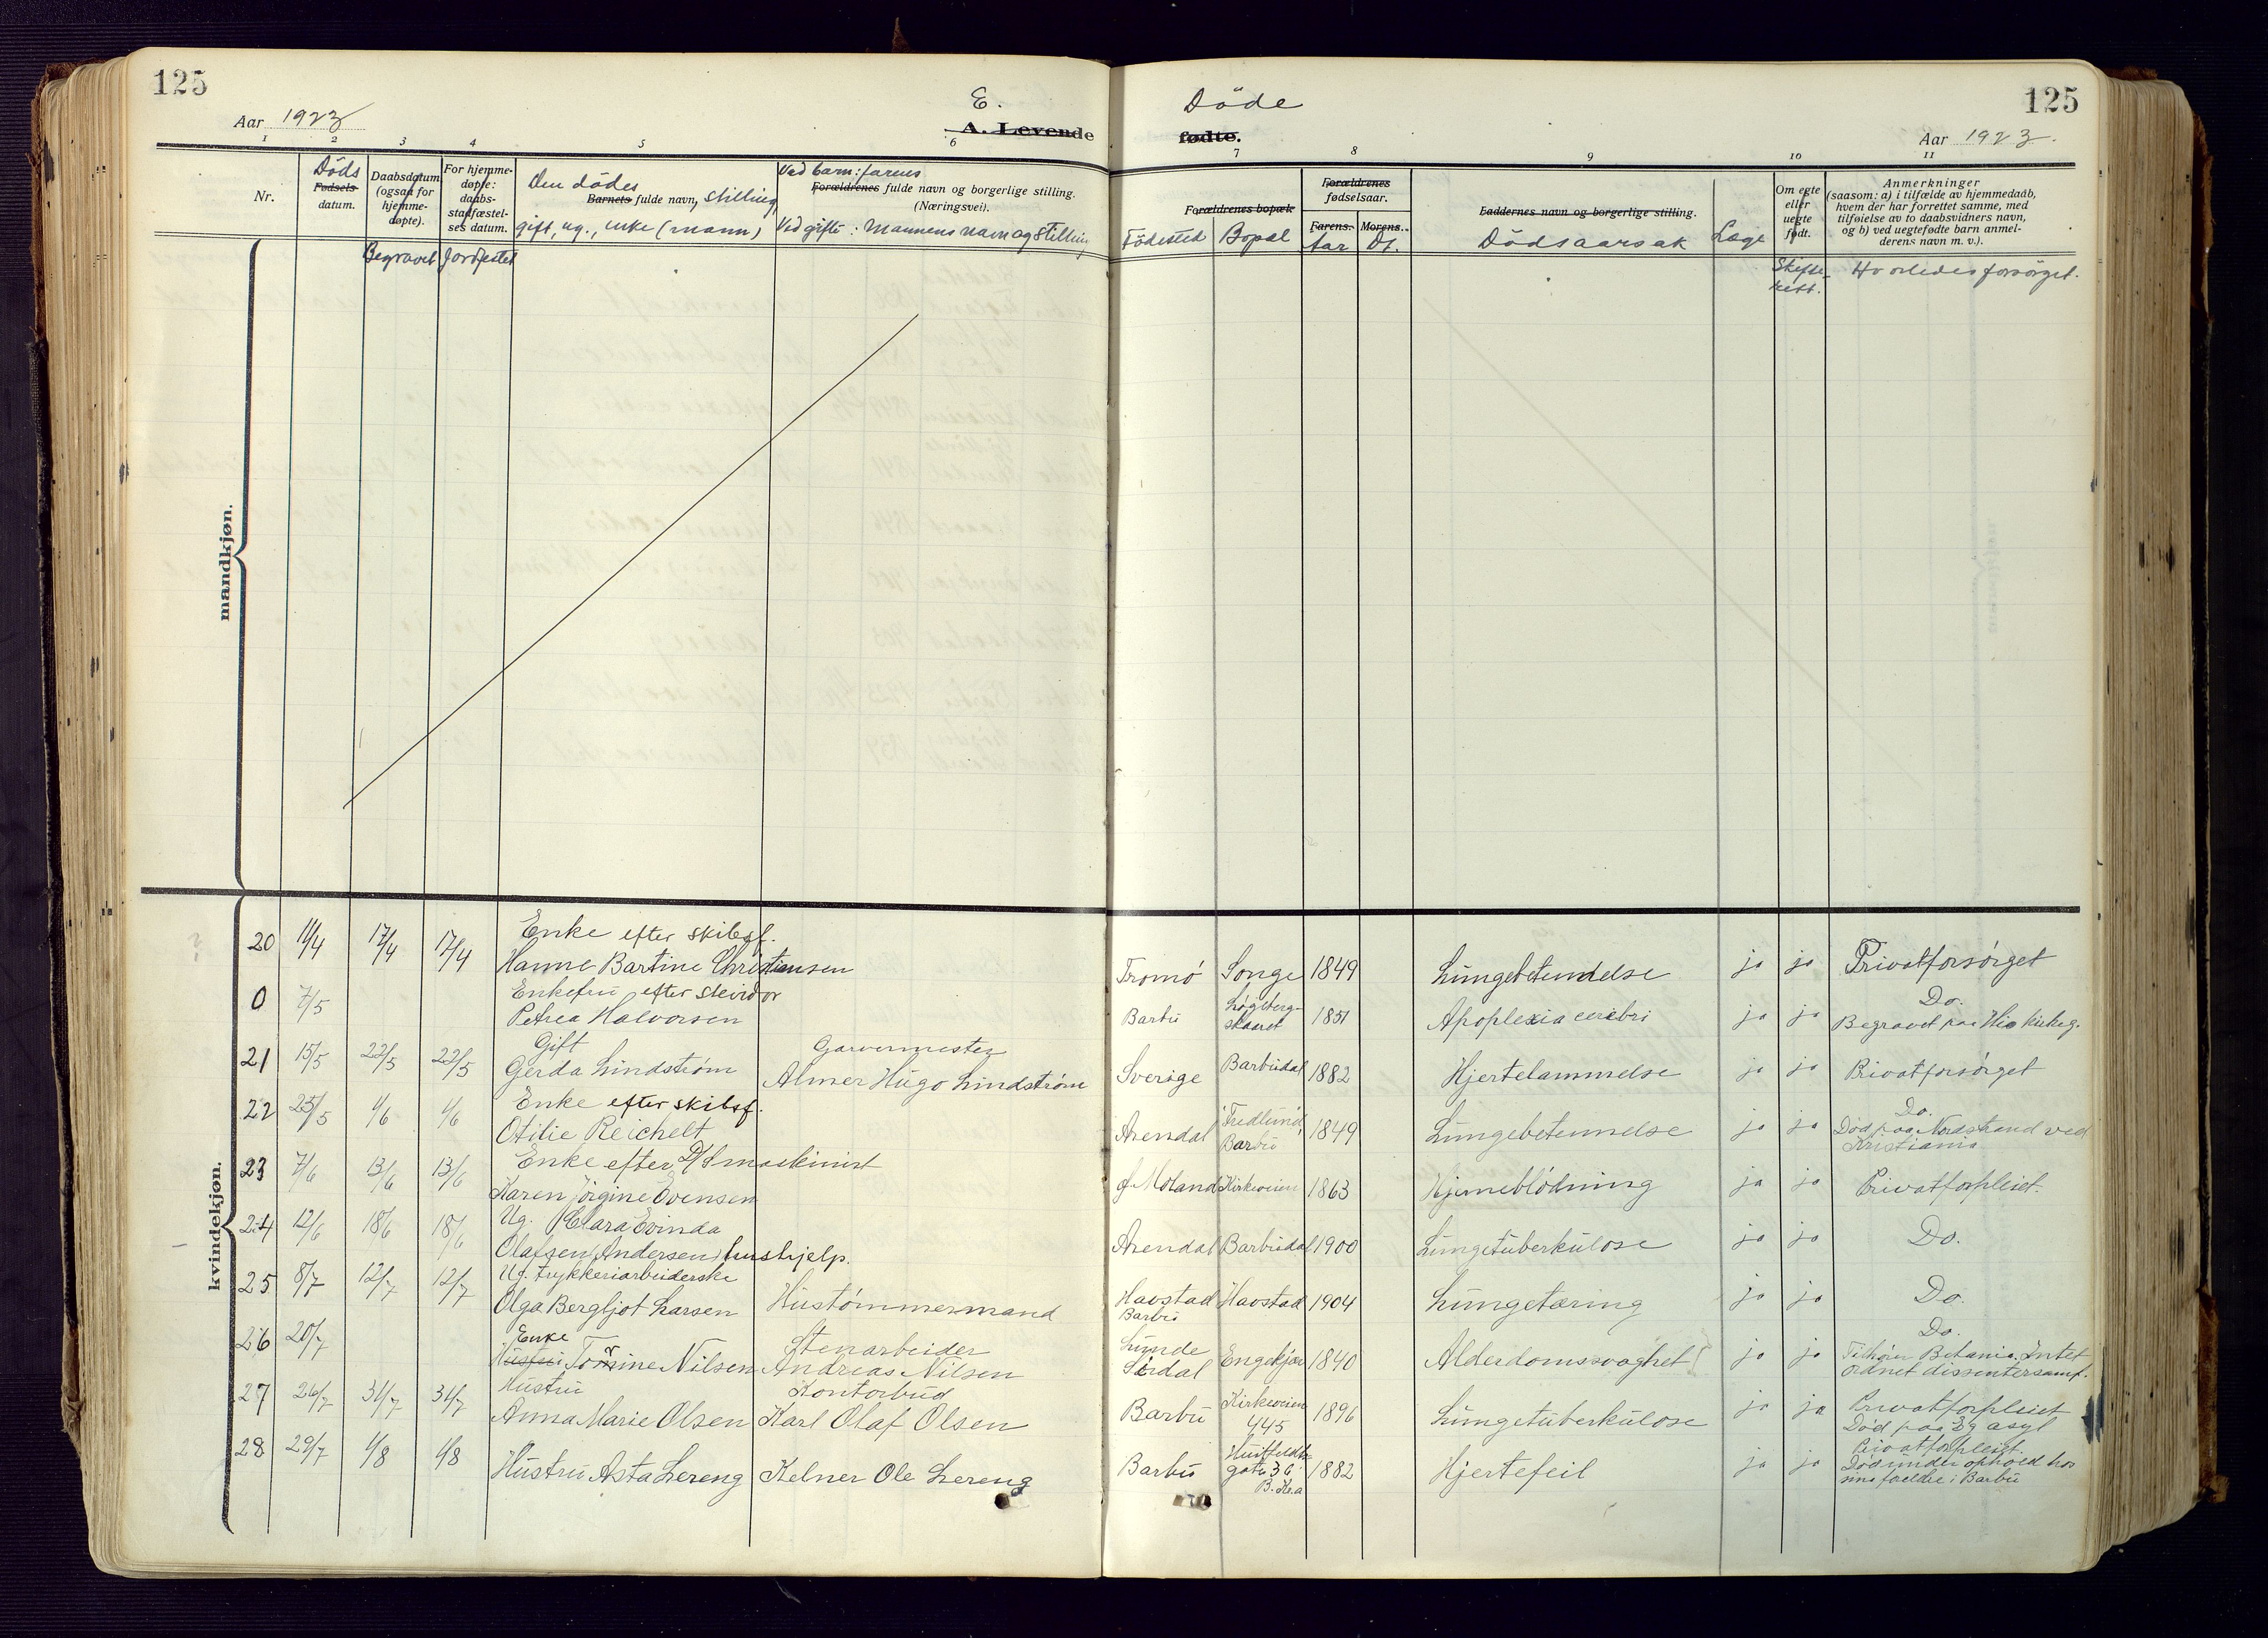 125
125
Aar 1923
E.
A. Levende
Døde
fødte.
Aar 1923.
1 2 3 4 5 6 7 8 9 10 11
Nr.
Døds
Fødsels-
datum.
Daabsdatum
(ogsaa for
hjemme-
døpte).
Begravet
For hjemme-
døpte:
daabs-
stadfæstel-
ses datum.
Jordfestet
Den dødes
Barnets fulde navn, stilling,
gift, ug., enke (mann)
Ved barn: farens
Forældrenes fulde navn og borgerlige stilling.
(Næringsvei).
Ved gifte: Mannens navn og stilling
Forældrenes bopæl
Fødested Bopæl
Forældrenes
fødselsaar.
Farens. Morens.
Aar Dt.
Faddernes navn og borgerlige stilling.
Dødsaarsak
Læge
Om egte
eller
uegte
født.
Skifte-
rett.
Anmerkninger
(saasom: a) i tilfælde av hjemmedaab,
hvem der har forrettet samme, med
tilføielse av to daabsvidners navn,
og b) ved uegtefødte barn anmel-
derens navn m. v.).
Hvorledes forsørget.
mandkjøn.
kvindekjøn.
Enke efter skibsf.
20 11/4 17/4 17/4 Hanne Bartine Christiansen Tromø Songe 1849 Lungebetendelse ja ja Privatforsørget
Enkefru efter steividor
0 7/5 Petrea Halvorsen Barbu Løgeberg-
skaaret 1851 Apoplexia cerebri ja ja Do.
Begravet paa His kirkeg.
Gift Garvermester
21 15/5 22/5 22/5 Gerda Lindstrøm Almer Hugo Lindstrøm Sverige Barbudal 1882 Hjertelammelse ja ja Privatforsørget
Enke efter skibsf.
22 25/5 1/6 1/6 Otilie Reichelt Arendal Fredlund,
Barbu 1849 Lungebetennelse ja ja Do.
Død paa Nordstrand ved
Kristiania
Enke efter D/S maskinist
23 7/6 13/6 13/6 Karen Jørgine Evensen Ø Moland Kirkeveien 1863 Hjerneblødning ja ja Privatforpleiet.
Ug. Clara Evinda
24 12/6 18/6 18/6 Olafsen Andersen, hushjelp. Arendal Barbudal 1900 Lungetuberkulose ja ja Do.
Ug. trykkeriarbeiderske
25 8/7 12/7 12/7 Olga Bergljot Larsen Hustømmermand Havstad
Barbu Havstad 1904 Lungetæring ja ja Do.
Enke Stenarbeider
26 20/7 Hustru Tomine Nilsen Andreas Nilsen Lunde
Sirdal Engekjær 1840 Alderdomssvaghet ja ja Do.
Tilhører Betania. Intet
ordnet dissentersamf.
Hustru Kontorbud
27 26/7 31/7 31/7 Anna Marie Olsen Karl Olaf Olsen Barbu Kirkeveien
445 1896 Lungetuberkulose ja ja Privatforpleiet
Død paa Eg asyl
28 29/7 1/8 1/8 Hustru Asta Lereng Kelner Ole Lereng Barbu Huitfeldts
gate 36
1882 Hjertefeil ja ja Privatforpleiet.
Død under ophold hos
sine foreldre i Barbu